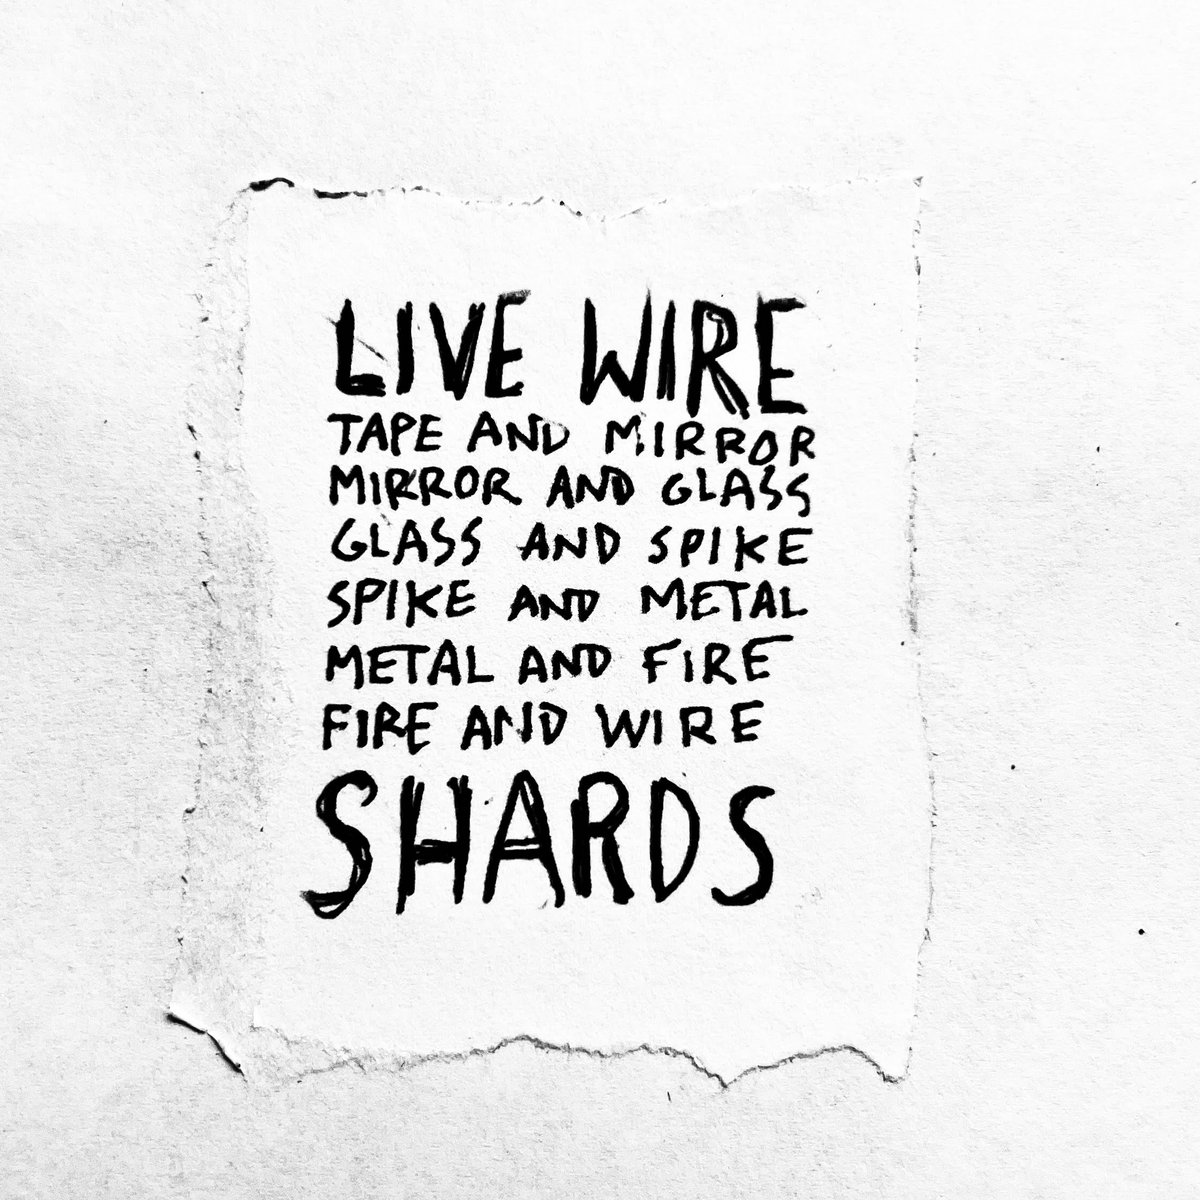 LIVE WIRE
TAPE AND MIRROR
MIRROR AND GLASS
GLASS AND SPIKE
SPIKE AND METAL
METAL AND FIRE
FIRE AND WIRE
SHARDS